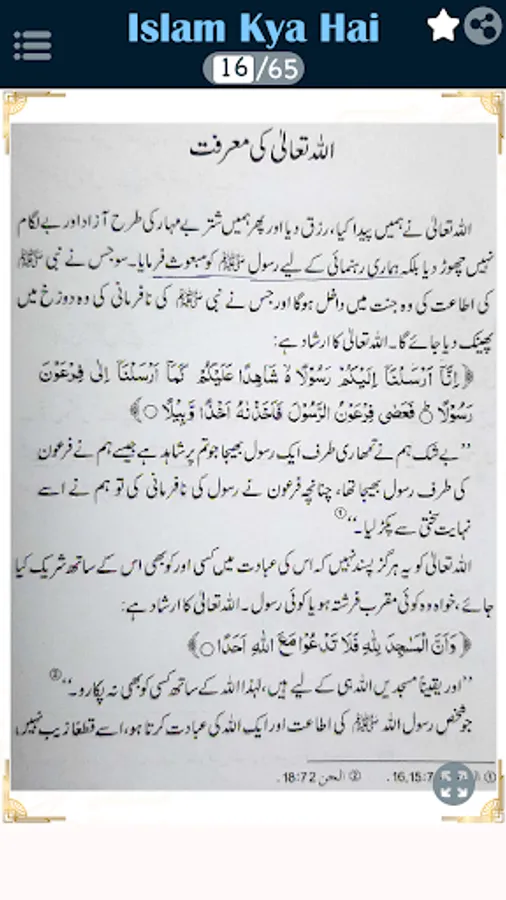 Islam Kya Hai
16/65
اللہ تعالیٰ کی معرفت
اللہ تعالیٰ نے ہمیں پیدا کیا، رزق دیا اور پھر ہمیں شتر بے مہار کی طرح آزاد اور بے لگام
نہیں چھوڑ دیا بلکہ ہماری رہنمائی کے لیے رسول ﷺ کو مبعوث فرمایا۔ سو جس نے نبی ﷺ
کی اطاعت کی وہ جنت میں داخل ہوگا اور جس نے نبی ﷺ کی نافرمانی کی وہ دوزخ میں
پھینک دیا جائے گا۔ اللہ تعالیٰ کا ارشاد ہے:
﴿اِنَّاۤ اَرْسَلْنَاۤ اِلَیْكُمْ رَسُوْلًا ۙ۬ شَاهِدًا عَلَیْكُمْ كَمَاۤ اَرْسَلْنَاۤ اِلٰی فِرْعَوْنَ
رَسُوْلًا ۟ؕ فَعَصٰی فِرْعَوْنُ الرَّسُوْلَ فَاَخَذْنٰهُ اَخْذًا وَّبِیْلًا ○﴾
’’بے شک ہم نے تمھاری طرف ایک رسول بھیجا جو تم پر شاہد ہے جیسے ہم نے فرعون
کی طرف رسول بھیجا تھا، چنانچہ فرعون نے رسول کی نافرمانی کی تو ہم نے اسے
نہایت سختی سے پکڑ لیا۔‘‘①
اللہ تعالیٰ کو یہ ہرگز پسند نہیں کہ اس کی عبادت میں کسی اور کو بھی اس کے ساتھ شریک کیا
جائے، خواہ وہ کوئی مقرب فرشتہ ہو یا کوئی رسول۔ اللہ تعالیٰ کا ارشاد ہے:
﴿وَاَنَّ الْمَسٰجِدَ لِلّٰهِ فَلَا تَدْعُوْا مَعَ اللّٰهِ اَحَدًا ○﴾
’’اور یقیناً مسجدیں اللہ ہی کے لیے ہیں، لہٰذا اللہ کے ساتھ کسی کو بھی نہ پکارو۔‘‘②
جو شخص رسول اللہ ﷺ کی اطاعت اور ایک اللہ کی عبادت کرتا ہو، اسے قطعًا زیب نہیں،
① 16,15:7 . ② الجن 18:72.